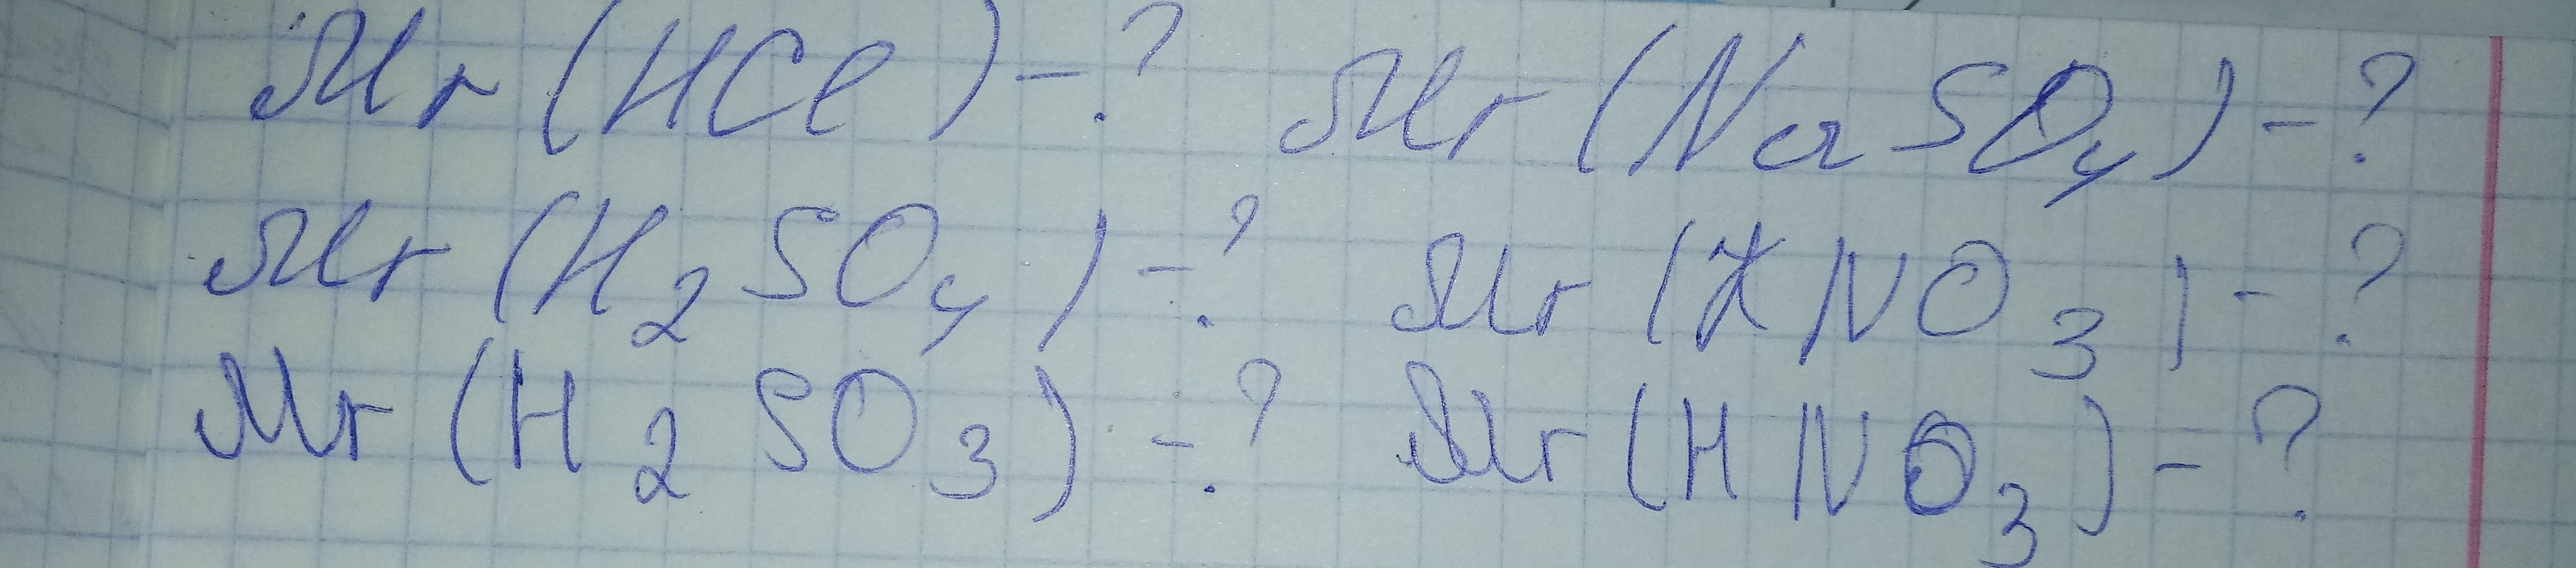 Mr (HCl) - ? Mr (NaSO₄) - ?
Mr (H₂SO₄) - ? Mr (KNO₃) - ?
Mr (H₂SO₃) - ? Mr (HNO₃) - ?